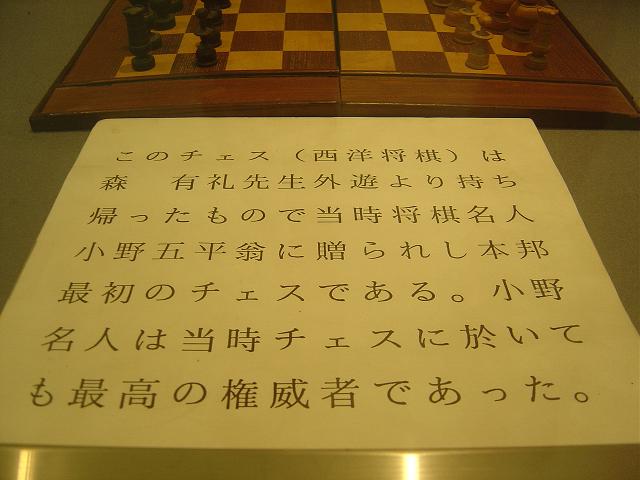 このチェス（西洋将棋）は
森　有礼先生外遊より持ち
帰ったもので当時将棋名人
小野五平翁に贈られし本邦
最初のチェスである。小野
名人は当時チェスに於いて
も最高の権威者であった。